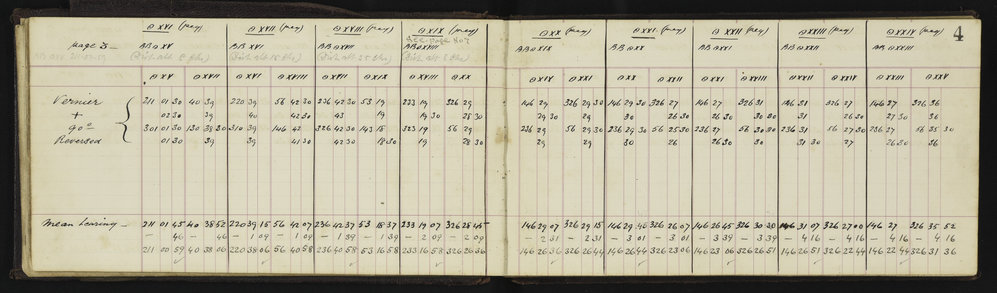 ⊙ XVI (Mag) ⊙ XVII (Mag) ⊙ XVIII (Mag) ⊙ XIX (Mag) ⊙ XX (Mag) ⊙ XXI (Mag) ⊙ XXII (Mag) ⊙ XXIII (Mag) ⊙ XXIV (Mag) 4
See page No 7
page 3 — BB ⊙ XV BB XVI BB ⊙ XVII BB ⊙ XVIII BB ⊙ XIX BB ⊙ XX BB ⊙ XXI BB ⊙ XXII BB ⊙ XXIII
⊙ XV ⊙ XVII ⊙ XVI ⊙ XVIII ⊙ XVII ⊙ XIX ⊙ XVIII ⊙ XX ⊙ XIX ⊙ XXI ⊙ XX ⊙ XXII ⊙ XXI ⊙ XXIII ⊙ XXII ⊙ XXIV ⊙ XXIII ⊙ XXV
Vernier 211 01 30 40 39 220 39 56 42 30 236 42 30 53 19 233 19 326 29 146 29 326 29 30 146 29 30 326 27 146 27 326 31 146 31 326 27 146 27 326 36
+ 02 30 39 40 42 30 43 19 19 30 28 30 29 30 29 31 26 30 26 30 30 30 31 26 30 27 30 36
90° 301 01 30 130 38 30 310 39 146 42 326 42 30 143 18 323 19 56 29 236 29 56 29 30 236 29 30 56 25 30 236 27 56 30 30 236 31 56 27 30 236 27 56 35 30
Reversed 01 30 39 39 41 30 42 30 18 30 19 28 30 29 29 30 26 26 30 30 31 30 27 26 30 36
Mean bearing — 211 01 45 40 38 52 220 39 15 56 42 07 236 42 37 53 18 37 233 19 07 326 28 45 146 29 07 326 29 15 146 29 46 326 26 07 146 26 45 326 30 30 146 31 07 326 27 00 146 27 326 35 52
— 46 — 46 — 1 09 — 1 09 — 1 39 — 1 39 — 2 09 — 2 09 — 2 31 — 2 31 — 3 01 — 3 01 — 3 39 — 3 39 — 4 16 — 4 16 — 4 16 — 4 16
211 00 59 40 38 06 220 38 06 56 40 58 236 40 58 53 16 58 233 16 58 326 26 36 146 26 36 326 26 44 146 26 44 326 23 06 146 23 06 326 26 51 146 26 51 326 22 44 146 22 44 326 31 36